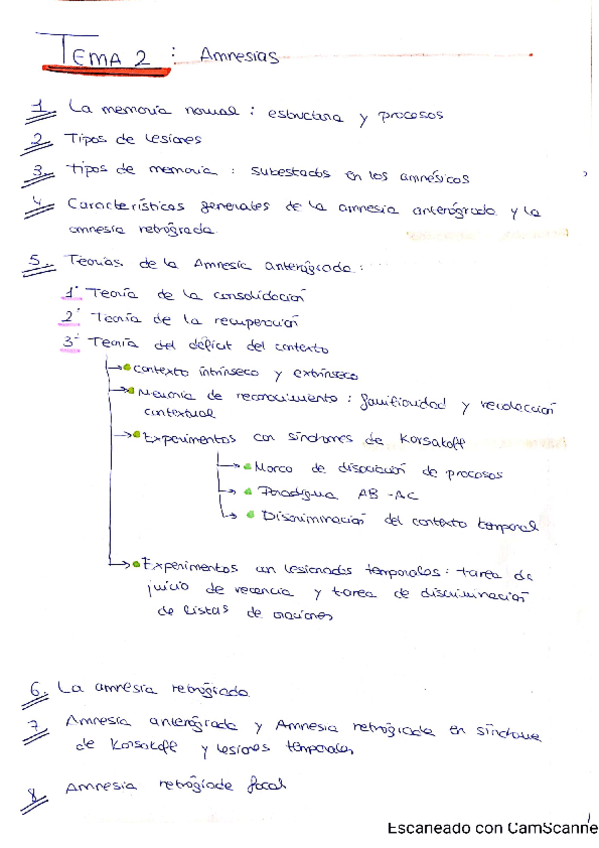 TEMA 2 : Amnesias
1. La memoria normal : estructura y procesos
2. Tipos de lesiones
3. tipos de memoria : subestados en los amnésicos
4. Características generales de la amnesia anterógrada y la
amnesia retrógrada.
5. Teorías de la Amnesia anterógrada :
1ª Teoría de la consolidación
2ª Teoría de la recuperación
3ª Teoría del déficit del contexto
→ Contexto intrínseco y extrínseco
→ Memoria de reconocimiento : familiaridad y recolección
contextual
→ Experimentos con síndrome de Korsakoff
→ Marco de disociación de procesos
→ Paradigma AB-AC
→ Discriminación del contexto temporal
→ Experimentos con lesionados temporales : tarea de
juicio de recencia y tarea de discriminación
de listas de oraciones
6. La amnesia retrógrada.
7. Amnesia anterógrada y Amnesia retrógrada en síndrome
de Korsakoff y lesiones temporales
8. Amnesia retrógrada focal
Escaneado con CamScanne